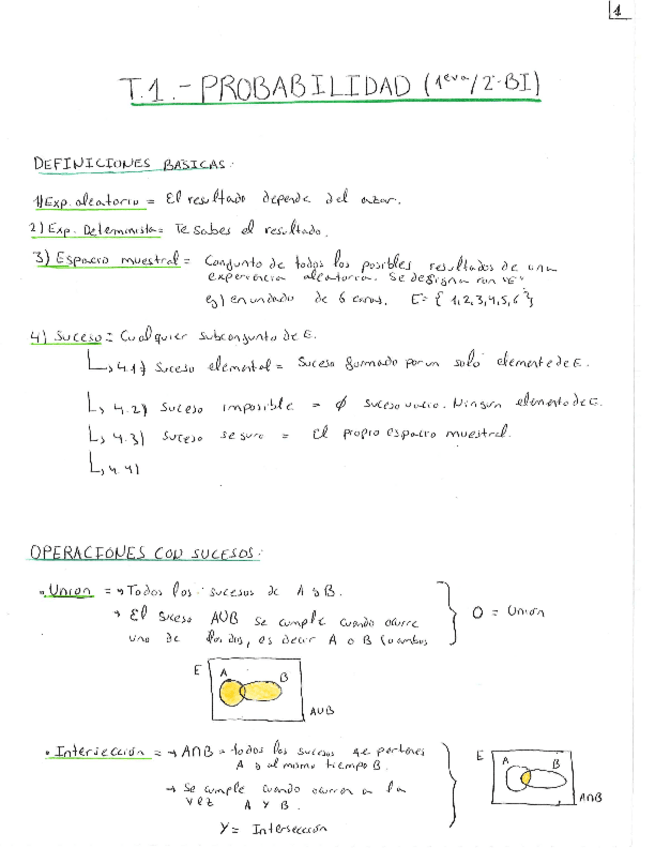 1
T.1.- PROBABILIDAD (1eva/2-BI)
DEFINICIONES BASICAS:
1) Exp. aleatorio = El resultado depende del azar.
2) Exp. Determinista = Te sabes el resultado.
3) Espacio muestral = Conjunto de todos los posibles resultados de una
experiencia aleatoria. Se designa con "E"
ej) en un dado de 6 caras. E = { 1,2,3,4,5,6 }
4) Suceso = Cualquier subconjunto de E.
4.1) Suceso elemental = Suceso formado por un solo elemento de E.
4.2) Suceso imposible = ∅ suceso vacio. Ningun elemento de E.
4.3) Suceso seguro = El propio espacio muestral.
4.4)
OPERACIONES CON SUCESOS:
• Union = → Todos los sucesos de A y B.
→ El suceso AUB se cumple cuando ocurre
uno de los dos, es decir A o B (o ambos
O = Unión
E A B
AUB
• Intersección = → A∩B = todos los sucesos
A y al mismo tiempo B.
→ Se cumple cuando ocurren a la
vez A Y B.
Y = Intersección
E A B
A∩B